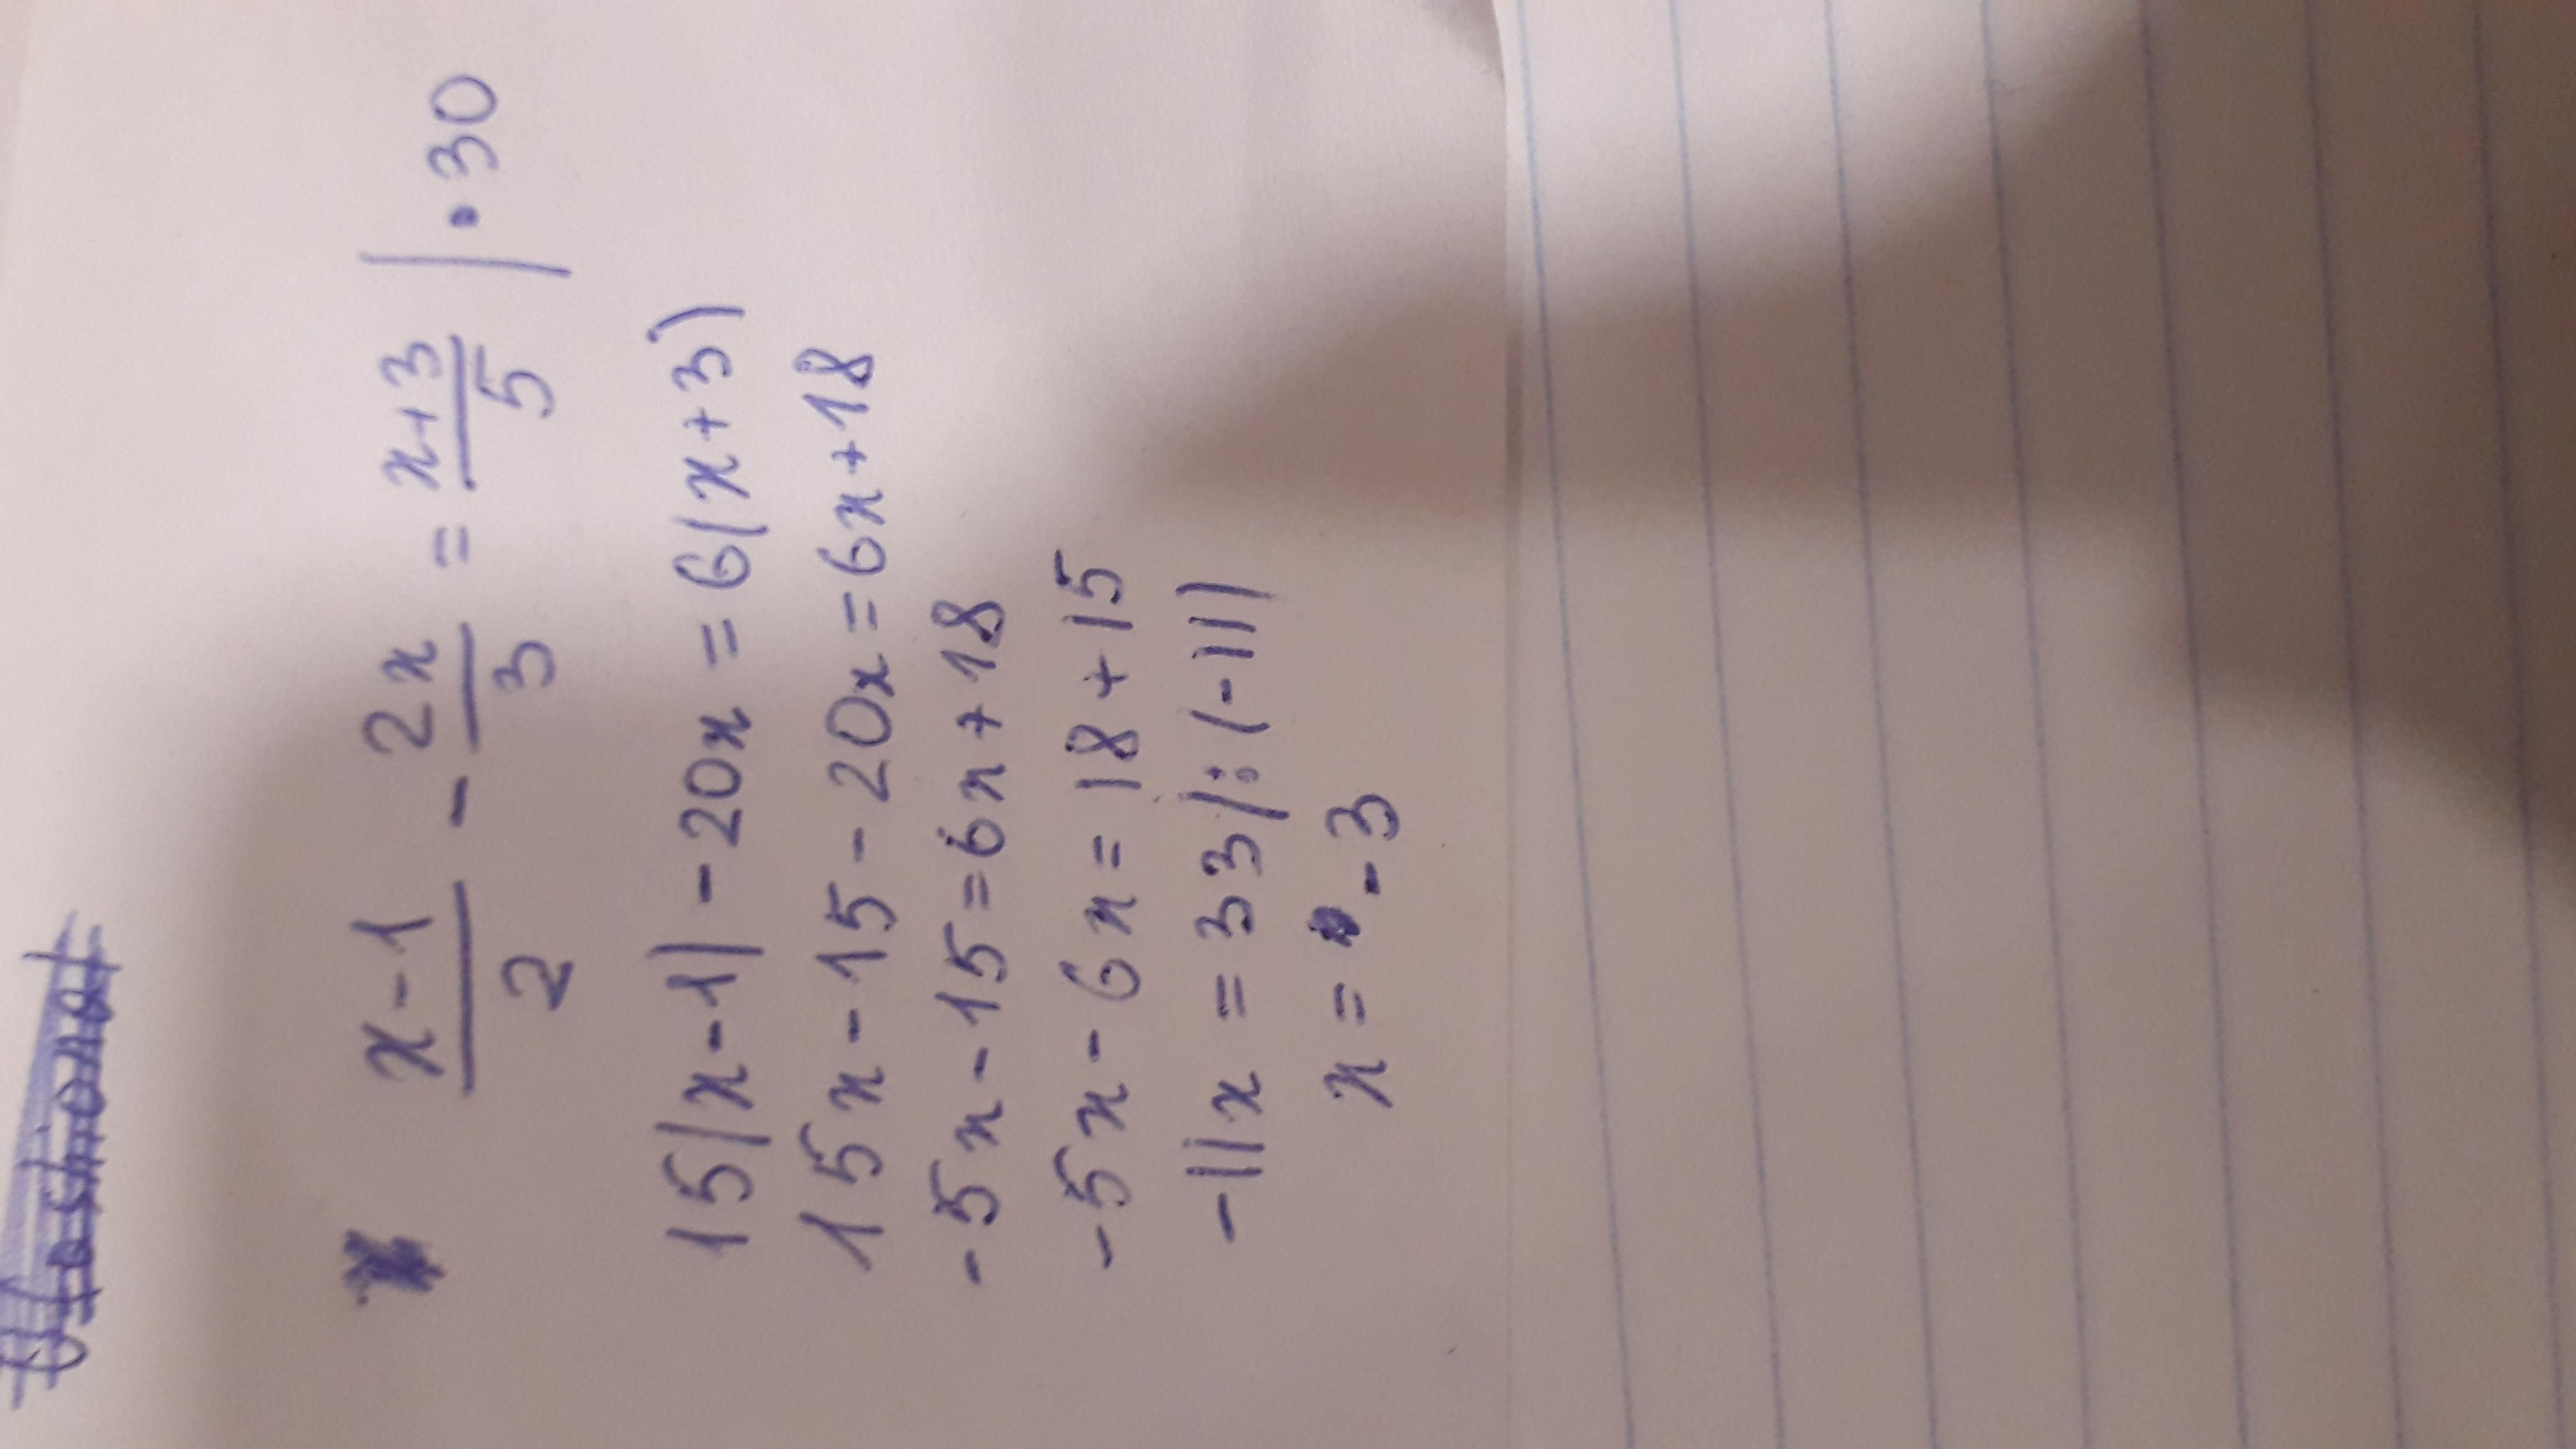 x-1/2 - 2x/3 = x+3/5 | • 30
15(x-1) - 20x = 6(x+3)
15x-15-20x=6x+18
-5x-15=6x+18
-5x-6x=18+15
-11x=33/:(-11)
x=-3